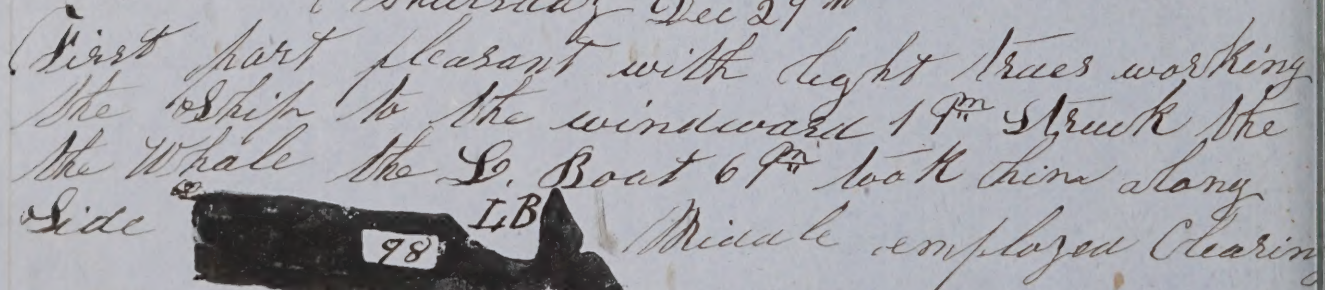 Thursday Dec 29th
First part pleasant with light traes working
the Ship to the windward 1 Pm Struck the
the Whale the L. Boat 6 Pm took him along
Side LB Middle employed Clearing
98